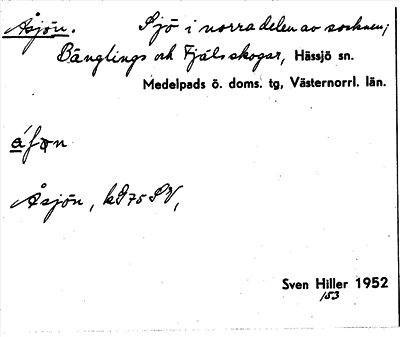 Åsjön. Sjö i norra delen av socknen;
Bänglings och Fjäls skogar, Hässjö sn.
Medelpads ö. doms. tg, Västernorrl. län.
Åsjön, k975SV,
Sven Hiller 1952
153